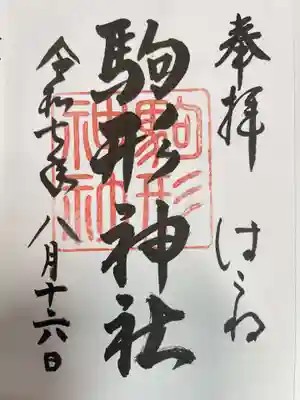 奉拝 はこね
駒形神社
駒形
神社
令和七年八月十六日